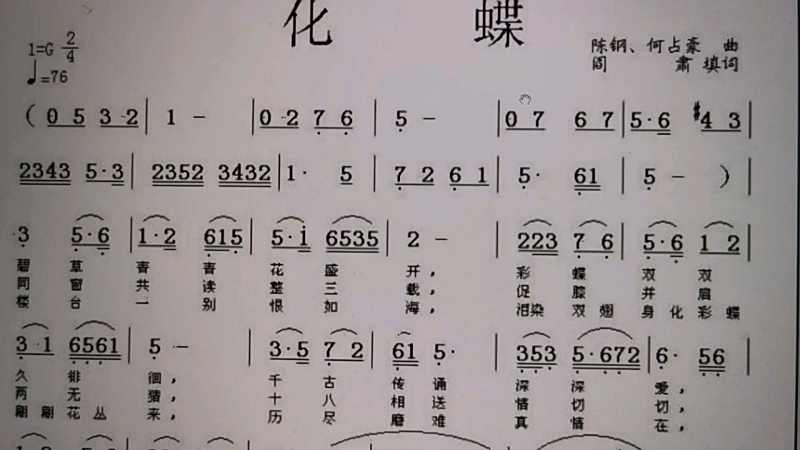 化 蝶
1=G 2/4
♩=76
陈钢、何占豪 曲
阎 肃 填词
( 0 5 3 · 2 | 1 - | 0 · 2 7 6 | 5 - | 0 7 6 7 | 5 · 6 #4 3 |
2343 5 · 3 | 2352 3432 | 1 · 5 | 7 2 6 1 | 5 · 61 | 5 - ) |
3 5 · 6 | 1 · 2 615 | 5 · i 6535 | 2 - | 223 7 6 | 5 · 6 1 2 |
碧 草 青 青 花 盛 开, 彩 蝶 双 双
同 窗 共 读 整 三 载, 促 膝 并 肩
楼 台 一 别 恨 如 海, 泪染 双 翅 身 化 彩 蝶
3 · 1 6561 | 5 - | 3 · 5 7 2 | 61 5 · | 353 5 · 672 | 6 · 56 |
久 徘 徊, 千 古 传 诵 深 深 爱,
两 无 猜, 十 八 相 送 情 切 切,
翩 翩 花 丛 来, 历 尽 磨 难 真 情 在,